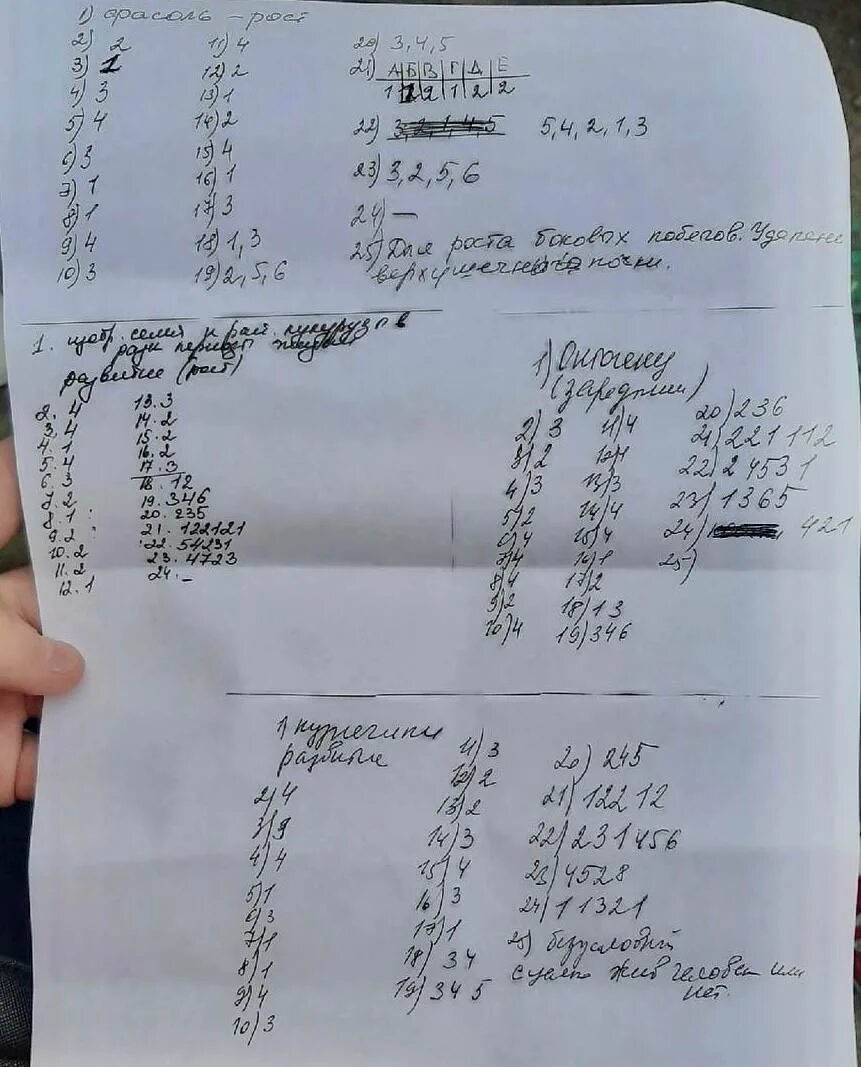 1) фасоль – рост
2) 2
3) 1
4) 3
5) 4
6) 3
7) 1
8) 1
9) 4
10) 3
11) 4
12) 2
13) 1
14) 2
15) 4
16) 1
17) 3
18) 1,3
19) 2,5,6
20) 3,4,5
21) А Б В Г Д Е
1 2 2 1 2 2
22) 3,2,1,4,5 5,4,2,1,3
23) 3,2,5,6
24) —
25) Для роста боковых побегов. Удален
верхушечная почки.
1. изобр. семя и раст. кукурузы в
разн период
развитие (рост)
2. 4
3. 4
4. 1
5. 4
6. 3
7. 2
8. 1
9. 2
10. 2
11. 2
12. 1
13. 3
14. 2
15. 2
16. 2
17. 3
18. 12
19. 346
20. 235
21. 122121
22. 54231
23. 4723
24. –
1)
2) 3
3) 2
4) 3
5) 2
6) 4
7) 4
8) 4
9) 2
10) 4
11) 4
12) 1
13) 3
14) 4
15) 4
16) 1
17) 2
18) 13
19) 346
20) 236
21) 221112
22) 24531
23) 1365
24) 421
25)
1) кузнечики
развитие
2) 4
3) 3
4) 4
5) 1
6) 3
7) 1
8) 1
9) 4
10) 3
11) 3
12) 2
13) 2
14) 3
15) 4
16) 3
17) 1
18) 34
19) 345
20) 245
21) 12212
22) 231456
23) 4528
24) 11321
25) безусловный
жив человек или
нет.